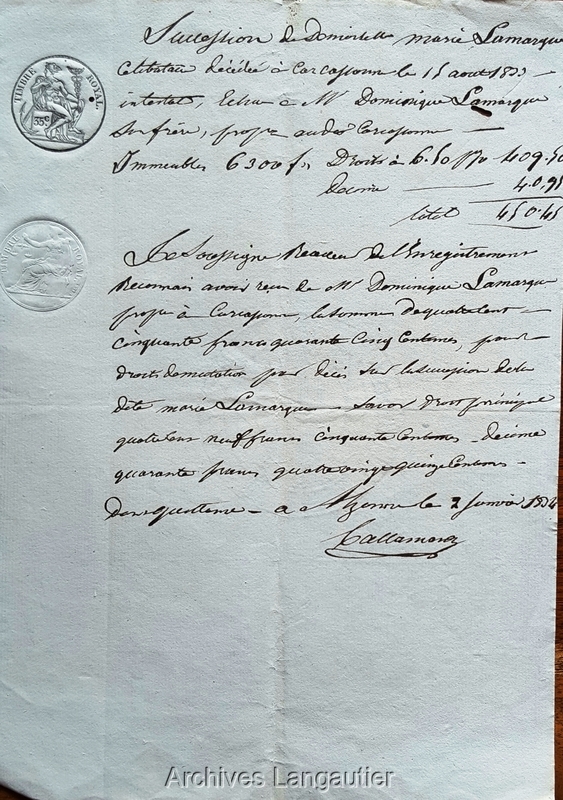 Succession de Demoiselle marie Lamarque
Celibataire décédée à Carcassonne le 15 aout 1833
intestat, Echue a Mr. Dominique Lamarque
Son frère, propre audit Carcassonne
Immeubles 6300 fs Droits à 6.50 p % 409.50
Decime 40.95
total 450.45
Je Soussigné Receveur de l'Enregistrement
Reconnais avoir reçu de Mr Dominique Lamarque
propre à Carcassonne, la somme de quatre Cent
cinquante francs quarante Cinq Centimes, pour
droit de mutation par décès sur la succession de la
dite marie Lamarque Savoir droit principal
quatre Cens neuf francs cinquante Centimes decime
quarante francs quatre vingt quinze Centimes
Dont quittance a le 2 Janvier 1834
TIMBRE ROYAL.
35 c
TIMBRE ROYAL
Archives Langautier